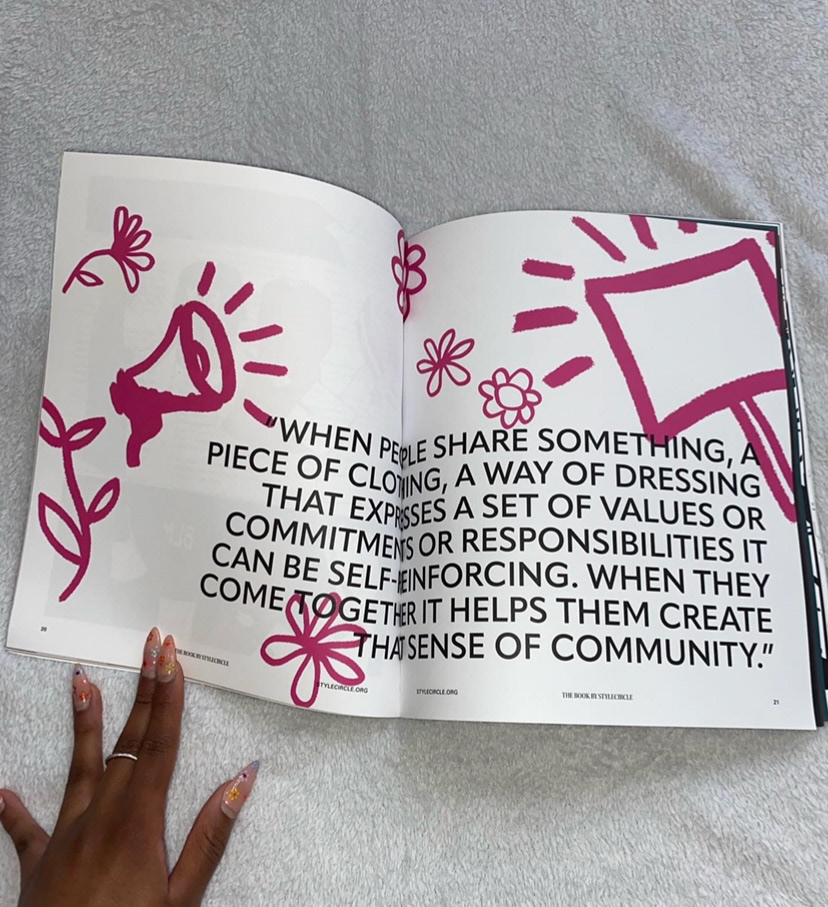 "WHEN PEOPLE SHARE SOMETHING, A
PIECE OF CLOTHING, A WAY OF DRESSING
THAT EXPRESSES A SET OF VALUES OR
COMMITMENTS OR RESPONSIBILITIES IT
CAN BE SELF-REINFORCING. WHEN THEY
COME TOGETHER IT HELPS THEM CREATE
THAT SENSE OF COMMUNITY."
20
THE BOOK BY STYLECIRCLE
STYLECIRCLE.ORG
STYLECIRCLE.ORG
THE BOOK BY STYLECIRCLE
21